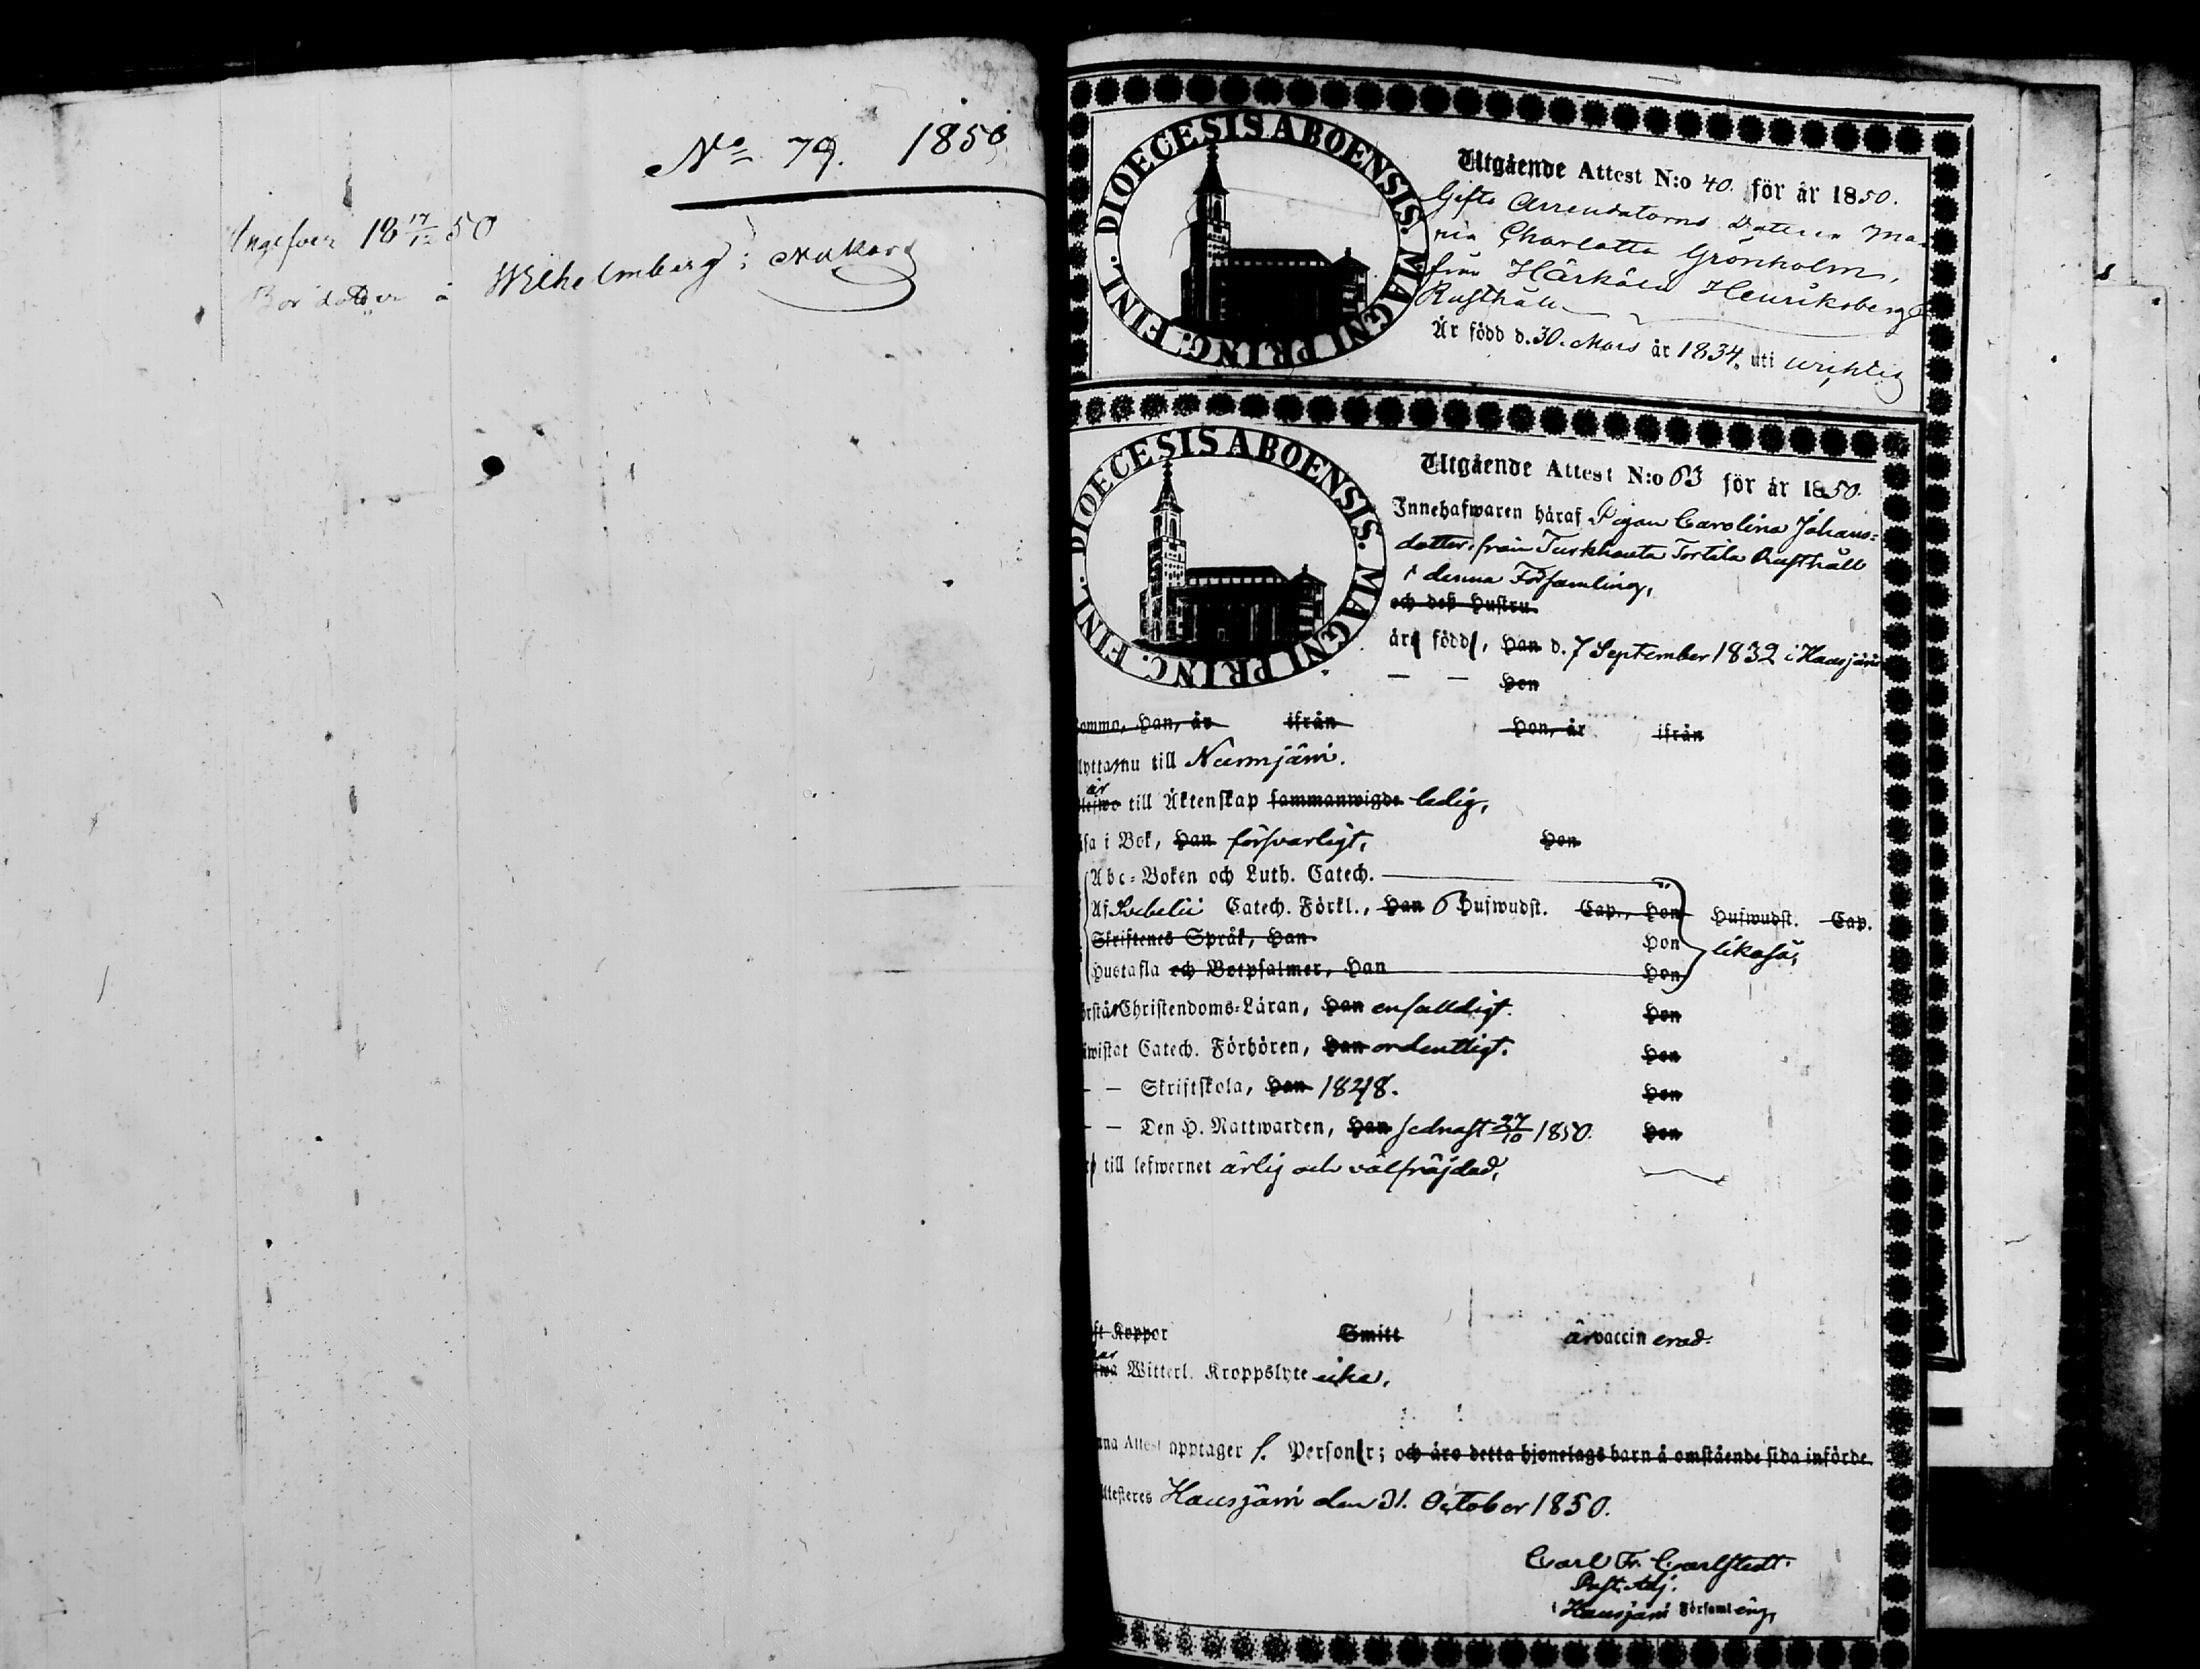 No 79. 1850
Ingifven 18 17/12 50
Bor dotter å Wilhelmberg i Nukari
DIOECESIS ABOENSIS. MAGNI PRINC. FINL.
Utgående Attest N:o 40. för år 1850.
Gifte Arrendatorns Dotteren Ma-
ria Charlotta Grönholm,
från Härkälä Henriksberg
Rusthåll
Är född d. 30. Mars år 1834. uti wichtis
DIOECESIS ABOENSIS. MAGNI PRINC. FINL.
Utgående Attest N:o 63 för år 1850.
Innehafwaren häraf Pigan Carolina Johans-
dotter, från Turkhauta Tortila Rusthåll
i denna Församling,
och deß Hustru
äro född, Han d. 7 September 1832 i Hausjärvi
— — Hon
komma, Han, år ifrån Hon, år ifrån
lytta nu till Nurmjärvi.
är
blefwo till Äktenskap sammanwigde ledig,
äsa i Bok, Han försvarligt, Hon
Abc-Boken och Luth. Catech.
Af Svebelii Catech. Förkl., Han 6 Hufwudst. Cap., Hon Hufwudst. Cap.
Skriftenes Språk, Han Hon likaså,
Hustafla och Botpsalmer, Han Hon
örstår Christendoms-Läran, Han enfalldigt. Hon
iwistat Catech. Förhören, Han ordentligt. Hon
— — Skriftskola, Han 1848. Hon
— — Den H. Nattwarden, Han sednast 27/10 1850. Hon
till lefwernet ärlig och välfräjdad,
ft Koppor Smitt är vaccinerad.
har
fwa Witterl. Kroppslyte icke,
nna Attest upptager 1. Personer; och äro detta hjonelags barn å omstående sida införde.
ttesteres Hausjärvi den 31. October 1850.
Carl Fr. Carlstedt.
Past. Adj.
i Hausjärvi Församling,